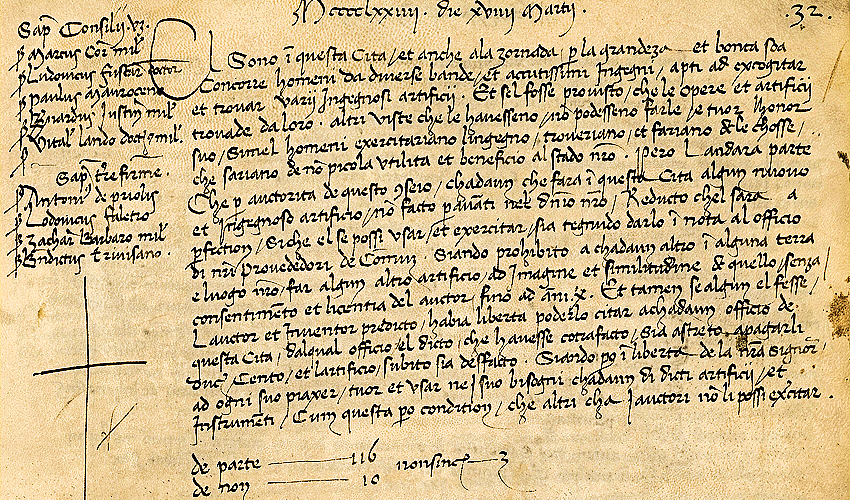 Mcccclxxiiij. die xviiij Martij.
.32.
Sap. Consilij. vz.
ꝑ Marcus Cor mil
ꝑ Ludovicus fuscar doctor
ꝑ Paulus Mauroceno
ꝑ Bnardus Justin mil
ꝑ Vital lando doct 7 mil
Sap. tre firme.
ꝑ Antoni de priolis
ꝑ Lodovicus faletro
ꝑ Zachari Barbaro mil
ꝑ Bndictus trivisano.
El Sono ĩ questa Cita, et anche ala zornada, p la grandeza et bonta soa
Concorre homeni da diverse bande, et acutissimi Ingegni, apti ad excogitar
et trovar varij Ingegnosi artificij. Et sil fosse provisto, che le opere et artificij
trovade da loro. altri viste che le havesseno, nõ podesseno farle, e tuor lhonor
suo, Simel homeni exercitariano lingegno, troveriano, et fariano de le chosse,
che sariano de nõ picola utilita et beneficio al stado nr̃o. Pero Landara parte
Che p auctorita de questo 9seio, chadaun che fara ĩ questa Cita algun nuovo
et Ingegnoso artificio, nõ facto p avanti nel dñio nr̃o, Reducto chel sara a
pfiction, Siche el se possi usar, et exercitar, sia tegnudo darlo ĩ nota al officio
di nr̃i provededori de Comun. Siando prohibito a chadaun altro ĩ alguna terra
e luogo nr̃o, far algun altro artificio, ad Imagine et similitudine de quello, senza
consentimento et licentia del auctor, fino ad ãni .x. Et tamen se algun el fesse,
Lauctor et Inventor predicto, habia liberta poderlo citar achadaun officio de
questa Cita, dalqual officio el dicto, che havesse cõtrafacto, Sia astreto, apagarli
duc̃ Cento, et lartificio, subito sia desfacto. Siando po ĩ liberta de la nr̃a Signor
ad ogni suo piaxer, tuor et usar nei suo bisogni chadaun di dicti artificij, et
Instrumẽti, Cum questa po condition, che altri cha Iauctori nõ li possi exercitar.
de parte —— 116 nonsinc̃ —— 3
de non —— 10